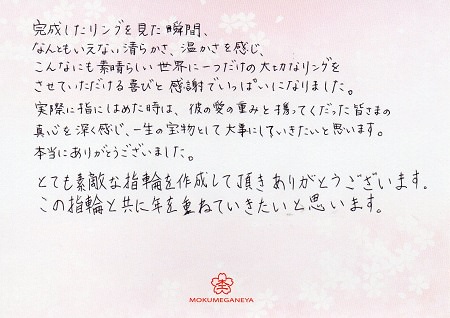 完成したリングを見た瞬間、
なんともいえない清らかさ、温かさを感じ、
こんなにも素晴らしい世界に一つだけの大切なリングを
させていただける喜びと感謝でいっぱいになりました。
実際に指にはめた時は、彼の愛の重みと携ってくだった皆さまの
真心を深く感じ、一生の宝物として大事にしていきたいと思います。
本当にありがとうございました。
とても素敵な指輪を作成して頂きありがとうございます。
この指輪と共に年を重ねていきたいと思います。
MOKUMEGANEYA